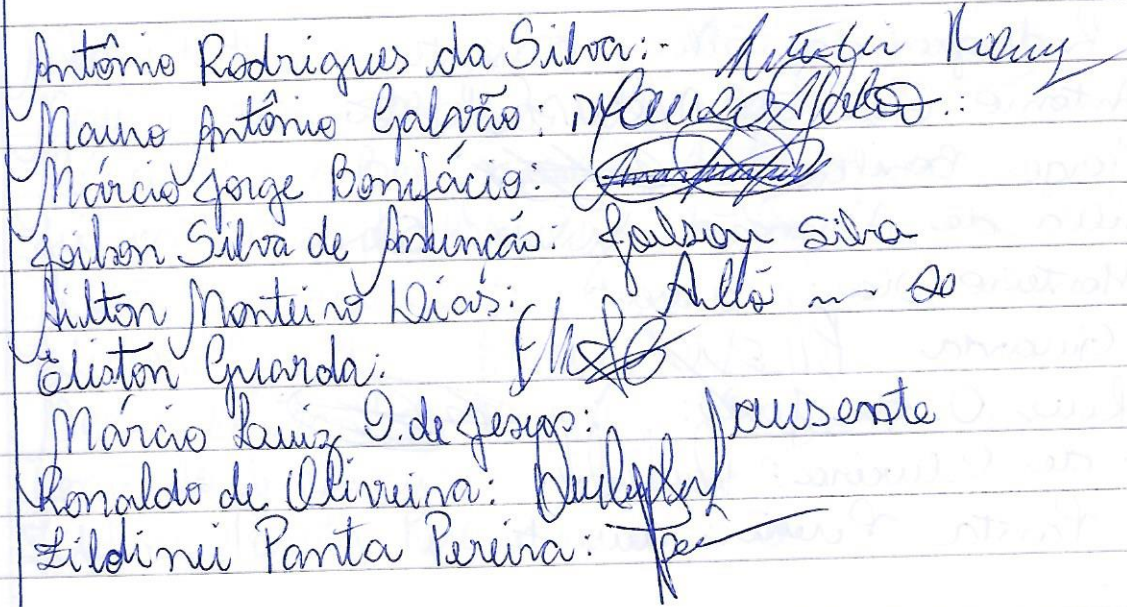 Antônio Rodrigues da Silva:-
Mauro Antônio Galvão:
Márcio Jorge Bonifácio:
Joilson Silva de Anunção: Joilson Silva
Ailton Monteiro Dias:
Eliston Guarda:
Márcio Luiz O. de Jesus: ausente
Ronaldo de Oliveira:
Zildinei Panta Pereira: